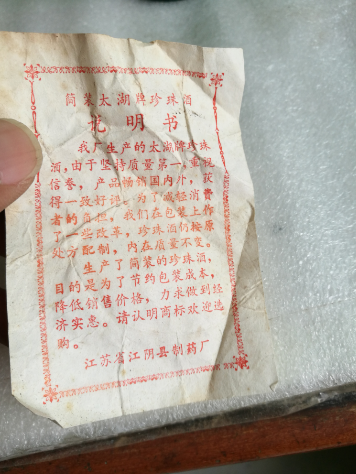 简装太湖牌珍珠酒
说明书
我厂生产的太湖牌珍珠
酒，由于坚持质量第一，重视
信誉，产品畅销国内外，获
得一致好评。为了减轻消费
者的负担，我们在包装上作
了一些改革，珍珠酒仍按原
处方配制，内在质量不变。
生产了简装的珍珠酒，
目的是为了节约包装成本，
降低销售价格，力求做到经
济实惠。请认明商标欢迎选
购。
江苏省江阴县制药厂